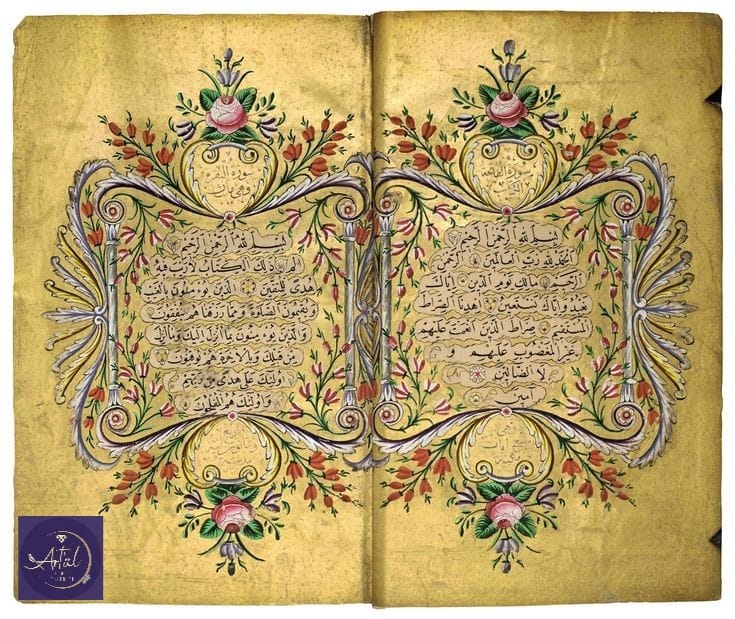 سورة الفاتحة
الكتاب
بسم الله الرحمن الرحيم
الحمد لله رب العالمين الرحمن
الرحيم مالك يوم الدين إياك
نعبد وإياك نستعين اهدنا الصراط
المستقيم صراط الذين أنعمت عليهم
غير المغضوب عليهم و
لا الضالين
آمين
سورة البقرة
بسم الله الرحمن الرحيم
الم ذلك الكتاب لا ريب فيه
هدى للمتقين الذين يؤمنون بالغيب
ويقيمون الصلوة ومما رزقناهم ينفقون
والذين يؤمنون بما أنزل إليك وما أنزل
من قبلك وبالآخرة هم يوقنون
أولئك على هدى من ربهم
وأولئك هم المفلحون
Artul